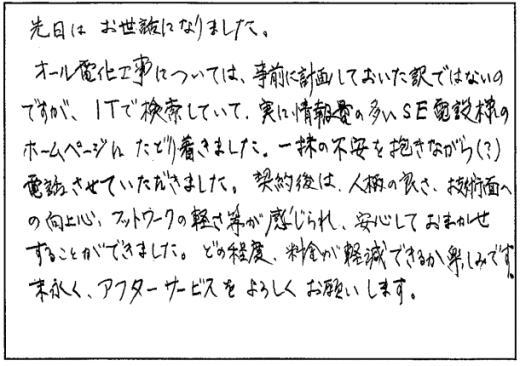 先日は お世話になりました。
オール電化工事については、事前に計画しておいた訳ではないの
ですが、ITで検索していて、実に情報量の多いSE電設様の
ホームページに たどり着きました。一抹の不安を抱きながら(?)
電話させていただきました。契約後は、人柄の良さ、技術面へ
の向上心、フットワークの軽さ等が感じられ、安心しておまかせ
することができました。どの程度、料金が軽減できるか楽しみです。
末永く、アフターサービスをよろしくお願いします。